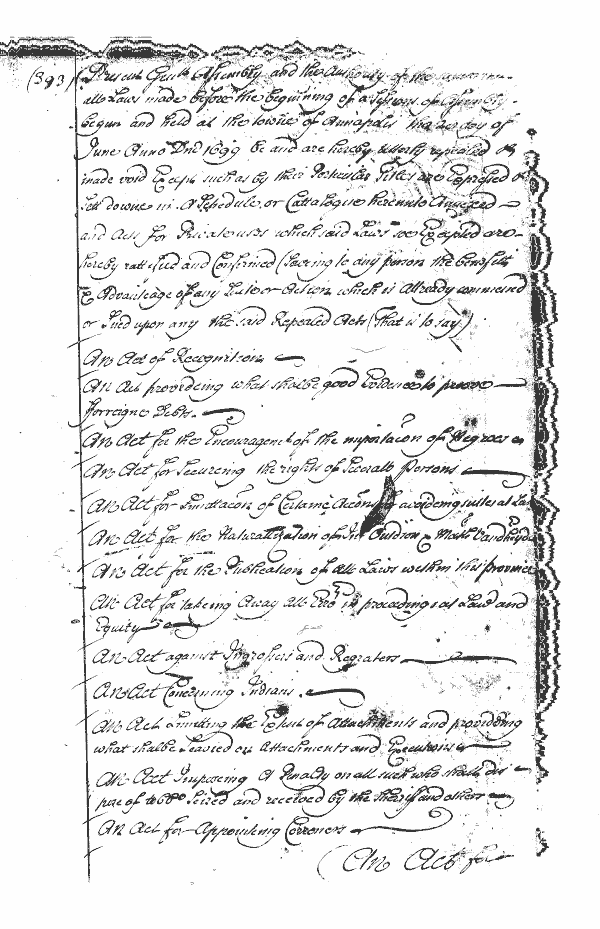 (393) Present Genll Assembly and the Authority of the same
all Laws made before the beginning of a Session of Assembly
begun and held at the towne of Annapolis the day of
June Anno Dni 1699 be and are hereby utterly repealed &
made void Except such as by their Perticular Titles are Expressed &
sett downe in A Schedule or Cattalogue hereunto Annexed
and Acts for Private uses which said Laws so Excepted are
hereby rattified and Confirmed (Saveing to any person the benefitt
& Advantage of any Suite or Action which is Already commenced
or Sued upon any the said Repealed Acts (that is to say)
An Act of Recognition
An Act provideing what shalbe good Evidence to prove
fforreigne Debts.
An Act for the Encouragemt of the importacon of Negroes
An Act for Secureing the rights of Severall persons
An Act for Limittacon of Certaine Accons for avoideing suites at Law
An Act for the Naturallization of Ouldson & Math: Vandheyden
An Act for the Publication of all Laws within this province
An Act for takeing Away all Erro in proceedings at Law and
Equity
An Act against Ingrossers and Regraters
An Act Concerning Indians.
An Act Limitting the Extent of Attachments and provideing
what shalbe Leavied on Attachments and Executions
An Act Imposeing A Penalty on all such who shall dis
pose of tobbo Seized and received by the Sheriff and others
An Act for Appointing Corroners
(An Act for